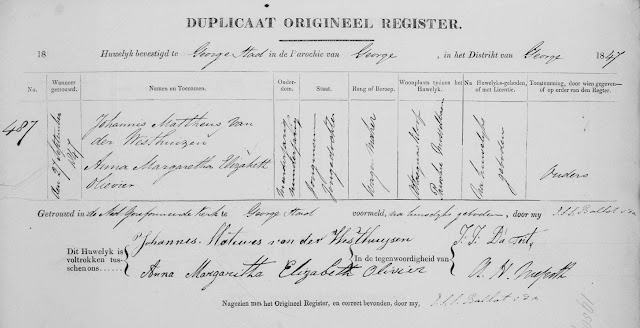 DUPLICAAT ORIGINEEL REGISTER.
18 Huwelyk bevestigd te George Stad in de Parochie van George , in het Distrikt van George 1847
No. Wanneer getrouwd. Namen en Toenamen. Ouderdom. Staat. Rang of Beroep. Woonplaats tydens het Huwelyk. Na Huwelyks-geboden, of met Licentie. Toestemming, door wien gegeven of op order van den Regter.
487 den 27 September 1847
Johannis Mattheus van
der Westhuizen
Anna Margaretha Elizabeth
Olivier
minderjarig
minderjarig
Jongman
Jongedochter
Wagenmaker
na huwelyks
geboden
Ouders
Getrouwd in de Ned. Gereformeerde Kerk te George Stad voormeld, na huwelyks geboden, door my J.J.S. Ballot v.d.m.
Dit Huwelyk is voltrokken tusschen ons
Johannes Matewes van der Westhuysen
Anna Margaretha Elizabeth Olivier
In de tegenwoordigheid van
Nagezien met het Origineel Register, en correct bevonden, door my, J.J.S. Ballot v.d.m.